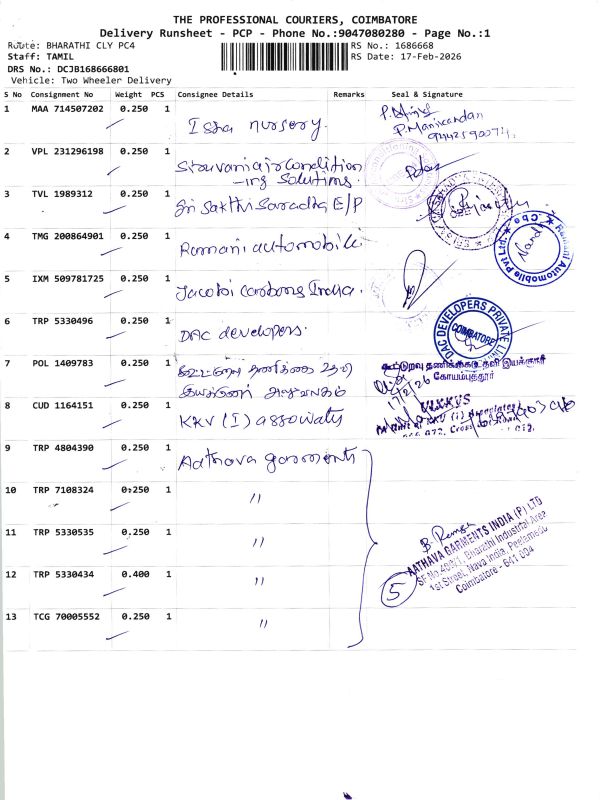 THE PROFESSIONAL COURIERS, COIMBATORE
Delivery Runsheet - PCP - Phone No.:9047080280 - Page No.:1
Route: BHARATHI CLY PC4
RS No.: 1686668
Staff: TAMIL
RS Date: 17-Feb-2026
DRS No.: DCJB168666801
Vehicle: Two Wheeler Delivery
S No Consignment No Weight PCS Consignee Details Remarks Seal & Signature
1 MAA 714507202 0.250 1 Isha nursery.
P. Manikandan
9442590074
2 VPL 231296198 0.250 1 Siruvani air Condition
-ing Solutions.
3 TVL 1989312 0.250 1 Sri Sakthi Saradha E/P
4 TMG 200864901 0.250 1 Ramani automobile
Ramani Automobile Pvt Ltd. ★ Cbe ★
5 IXM 509781725 0.250 1 Jacobi carbons India.
6 TRP 5330496 0.250 1 DAC developers.
DAC DEVELOPERS PRIVATE
COIMBATORE
7 POL 1409783 0.250 1 கூட்டுறவு தணிக்கை உதவி
இயக்குனர் அலுவலகம்
கூட்டுறவு தணிக்கை உதவி இயக்குனர்
கோயம்புத்தூர்
17/2/26
8 CUD 1164151 0.250 1 KKV (I) associates
9 TRP 4804390 0.250 1 Aathava garments
10 TRP 7108324 0.250 1 "
11 TRP 5330535 0.250 1 "
12 TRP 5330434 0.400 1 "
13 TCG 70005552 0.250 1 "
B. Ramesh
AATHAVA GARMENTS INDIA (P) LTD
SF No.409/1, Bharathi Industrial Area
1st Street, Nava India, Peelamedu
Coimbatore - 641 004
5